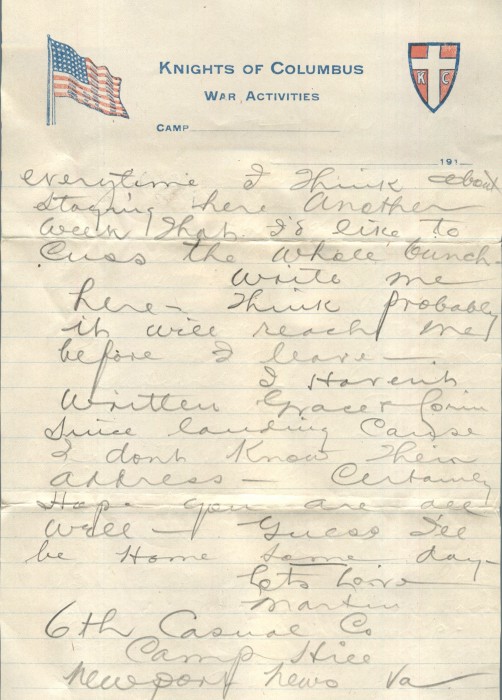 KNIGHTS OF COLUMBUS
WAR ACTIVITIES
K C
CAMP
191
everytime I think about
staying here another
week that I'd like to
cuss the whole bunch-
Write me
here - think probably
it will reach me
before I leave -.
I Haven't
written Grace &
since landing cause
I dont Know their
address - Certainly
Hope you are all
well - Guess I'll
be Home some day-
Lots Love
Martin
6th Casual Co
Camp Hill
Newport News Va